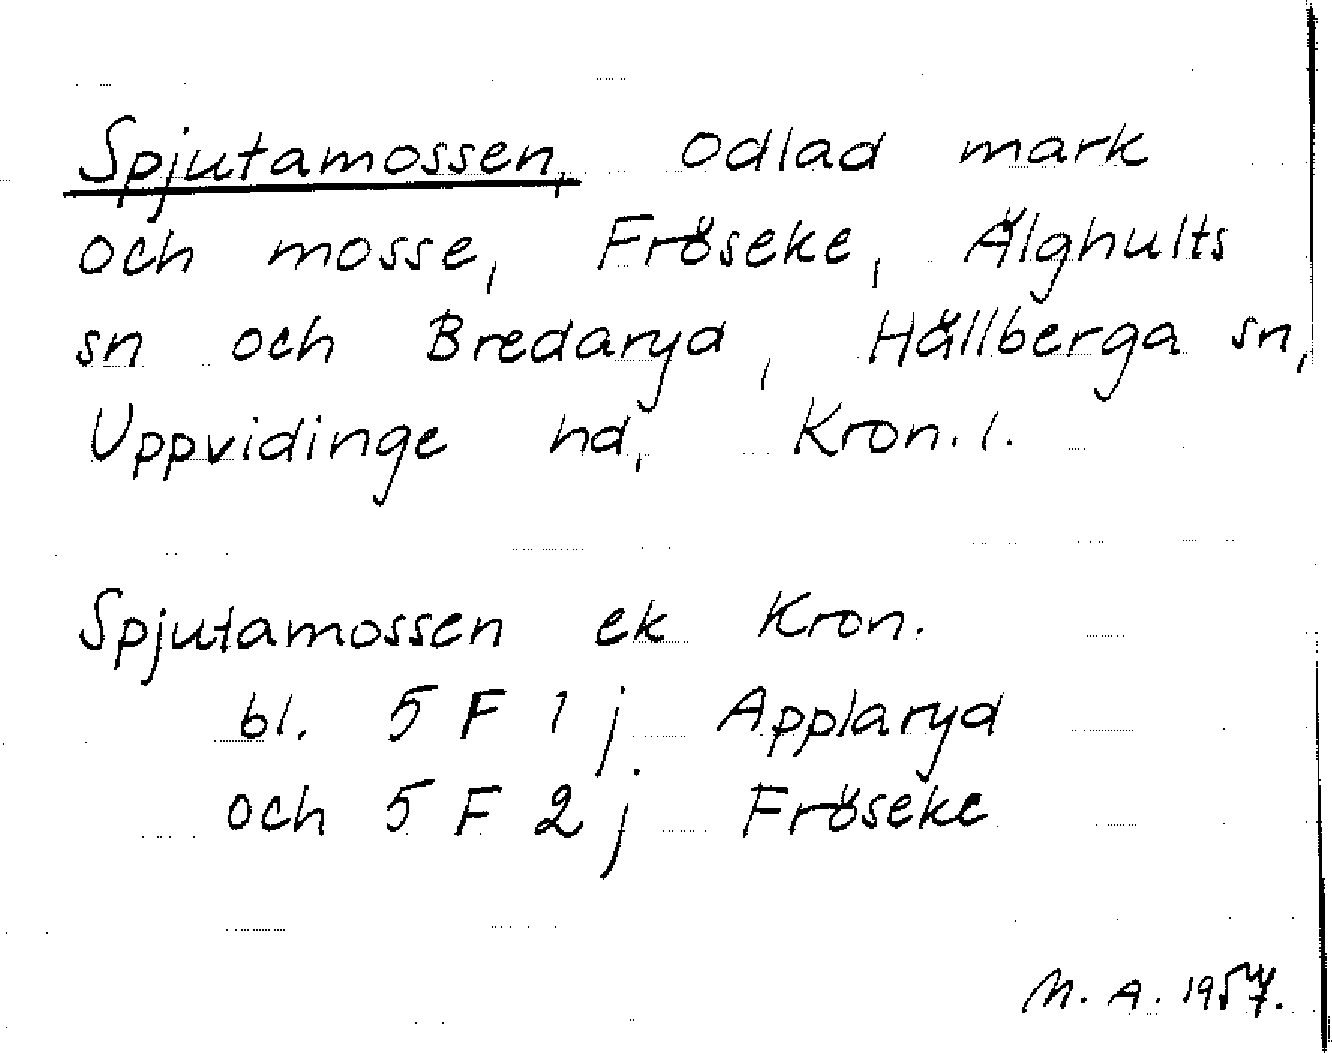 Spjutamossen, odlad mark
och mosse, Fröseke, Älghults
sn och Bredaryd, Hällberga sn,
Uppvidinge hd, Kron. l.
Spjutamossen ek Kron.
bl. 5 F 1 j Applaryd
och 5 F 2 j Fröseke
M. A. 1957.